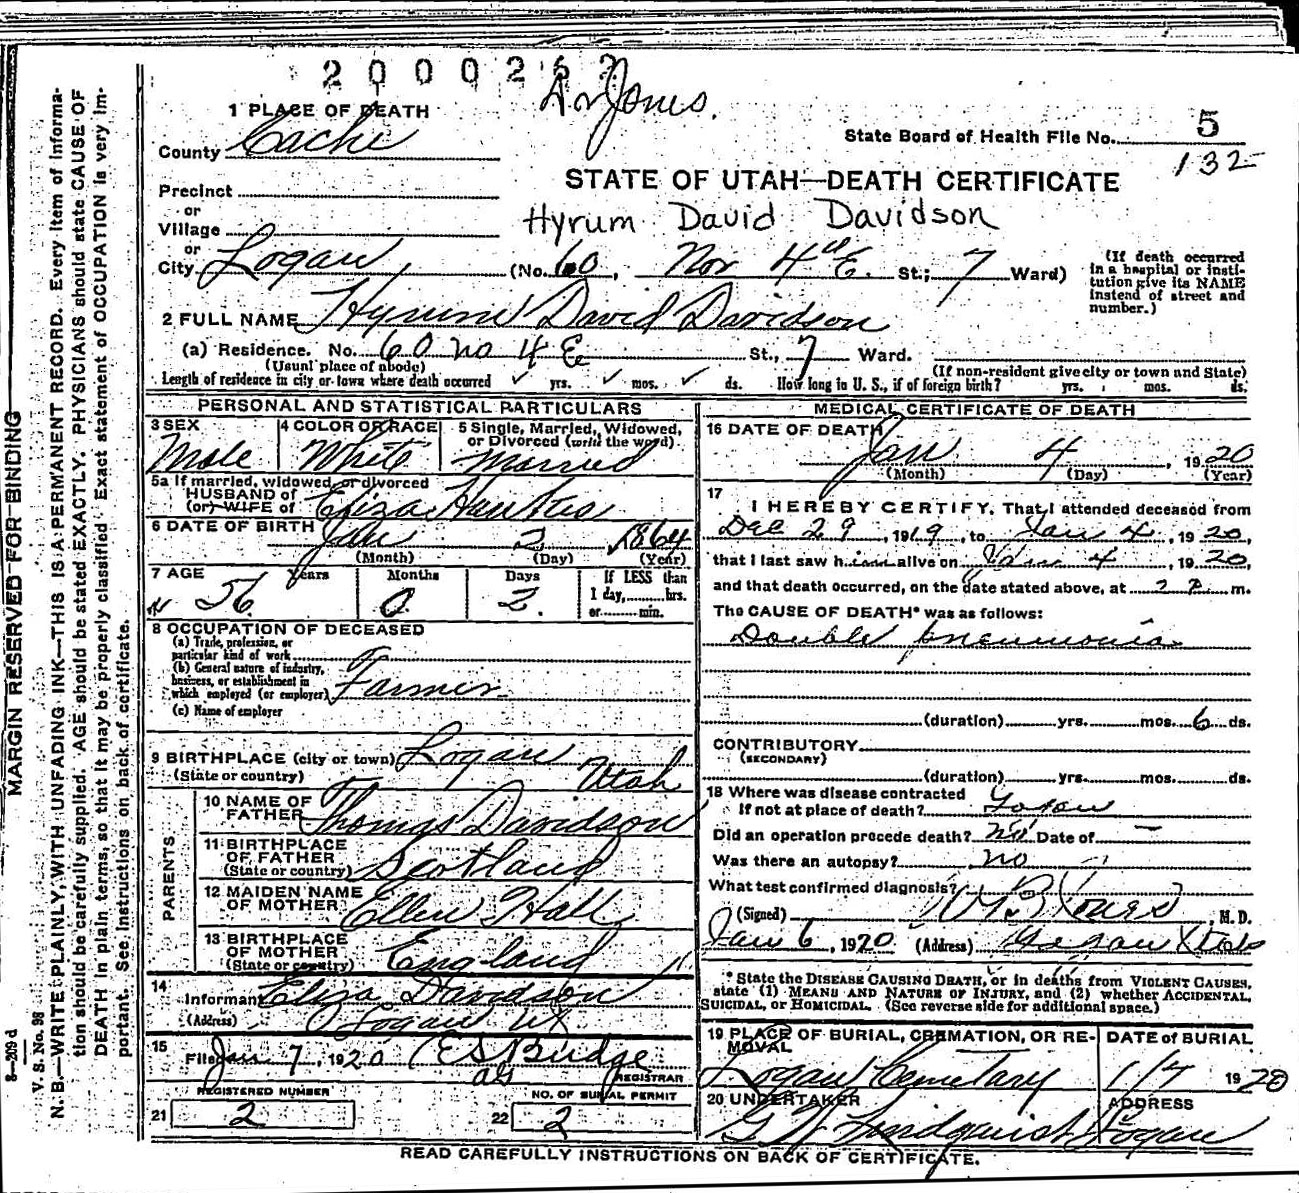 2000262
Dr Jones.
1 PLACE OF DEATH
County Cache
State Board of Health File No. 5
132
Precinct
or
Village
or
City Logan
STATE OF UTAH—DEATH CERTIFICATE
Hyrum David Davidson
(No. 60, Nor 4th E. St.; 7 Ward)
(If death occurred
in a hospital or insti-
tution give its NAME
instead of street and
number.)
2 FULL NAME Hyrum David Davidson
(a) Residence. No. 60 no 4 E St., 7 Ward.
(Usual place of abode)
(If non-resident give city or town and State)
Length of residence in city or town where death occurred ✓ yrs. ✓ mos. ✓ ds. How long in U. S., if of foreign birth? yrs. mos. ds.
PERSONAL AND STATISTICAL PARTICULARS
3 SEX
Male
4 COLOR OR RACE
White
5 Single, Married, Widowed,
or Divorced (write the word)
Married
5a If married, widowed, or divorced
HUSBAND of
(or) WIFE of Eliza Hawkes
6 DATE OF BIRTH
Jan 2 1864
(Month) (Day) (Year)
7 AGE Years Months Days If LESS than
56 0 2. 1 day,......hrs.
or......min.
8 OCCUPATION OF DECEASED
(a) Trade, profession, or
particular kind of work
(b) General nature of industry,
business, or establishment in
which employed (or employer) Farmer
(c) Name of employer
9 BIRTHPLACE (city or town) Logan
(State or country) Utah
PARENTS
10 NAME OF
FATHER Thomas Davidson
11 BIRTHPLACE
OF FATHER
(State or country) Scotland
12 MAIDEN NAME
OF MOTHER Ellen Hall
13 BIRTHPLACE
OF MOTHER
(State or country) England
14
Informant Eliza Davidson
(Address) Logan Ut
15
Filed Jan 7, 1920 E S Budge
REGISTRAR
REGISTERED NUMBER
21 2
NO. OF BURIAL PERMIT
22 2
MEDICAL CERTIFICATE OF DEATH
16 DATE OF DEATH
Jan 4, 1920
(Month) (Day) (Year)
17
I HEREBY CERTIFY, That I attended deceased from
Dec 29, 1919, to Jan 4, 1920,
that I last saw him alive on Jan 4, 1920,
and that death occurred, on the date stated above, at 2 P m.
The CAUSE OF DEATH* was as follows:
Double pneumonia
(duration) yrs. mos. 6 ds.
CONTRIBUTORY
(SECONDARY)
(duration) yrs. mos. ds.
18 Where was disease contracted
If not at place of death? Logan
Did an operation precede death? no Date of —
Was there an autopsy? no
What test confirmed diagnosis?
(Signed) , M. D.
Jan 6, 1920 (Address) Logan Utah
* State the DISEASE CAUSING DEATH, or in deaths from VIOLENT CAUSES,
state (1) MEANS AND NATURE OF INJURY, and (2) whether ACCIDENTAL,
SUICIDAL, or HOMICIDAL. (See reverse side for additional space.)
19 PLACE OF BURIAL, CREMATION, OR RE-
MOVAL
Logan Cemetary
DATE of BURIAL
1/7 1920
20 UNDERTAKER
G W Lindquist
ADDRESS
Logan
READ CAREFULLY INSTRUCTIONS ON BACK OF CERTIFICATE.
MARGIN RESERVED FOR BINDING
8—209 d
V. S. No. 98
N. B.—WRITE PLAINLY, WITH UNFADING INK—THIS IS A PERMANENT RECORD. Every item of informa-
tion should be carefully supplied. AGE should be stated EXACTLY. PHYSICIANS should state CAUSE OF
DEATH in plain terms, so that it may be properly classified. Exact statement of OCCUPATION is very im-
portant. See instructions on back of certificate.